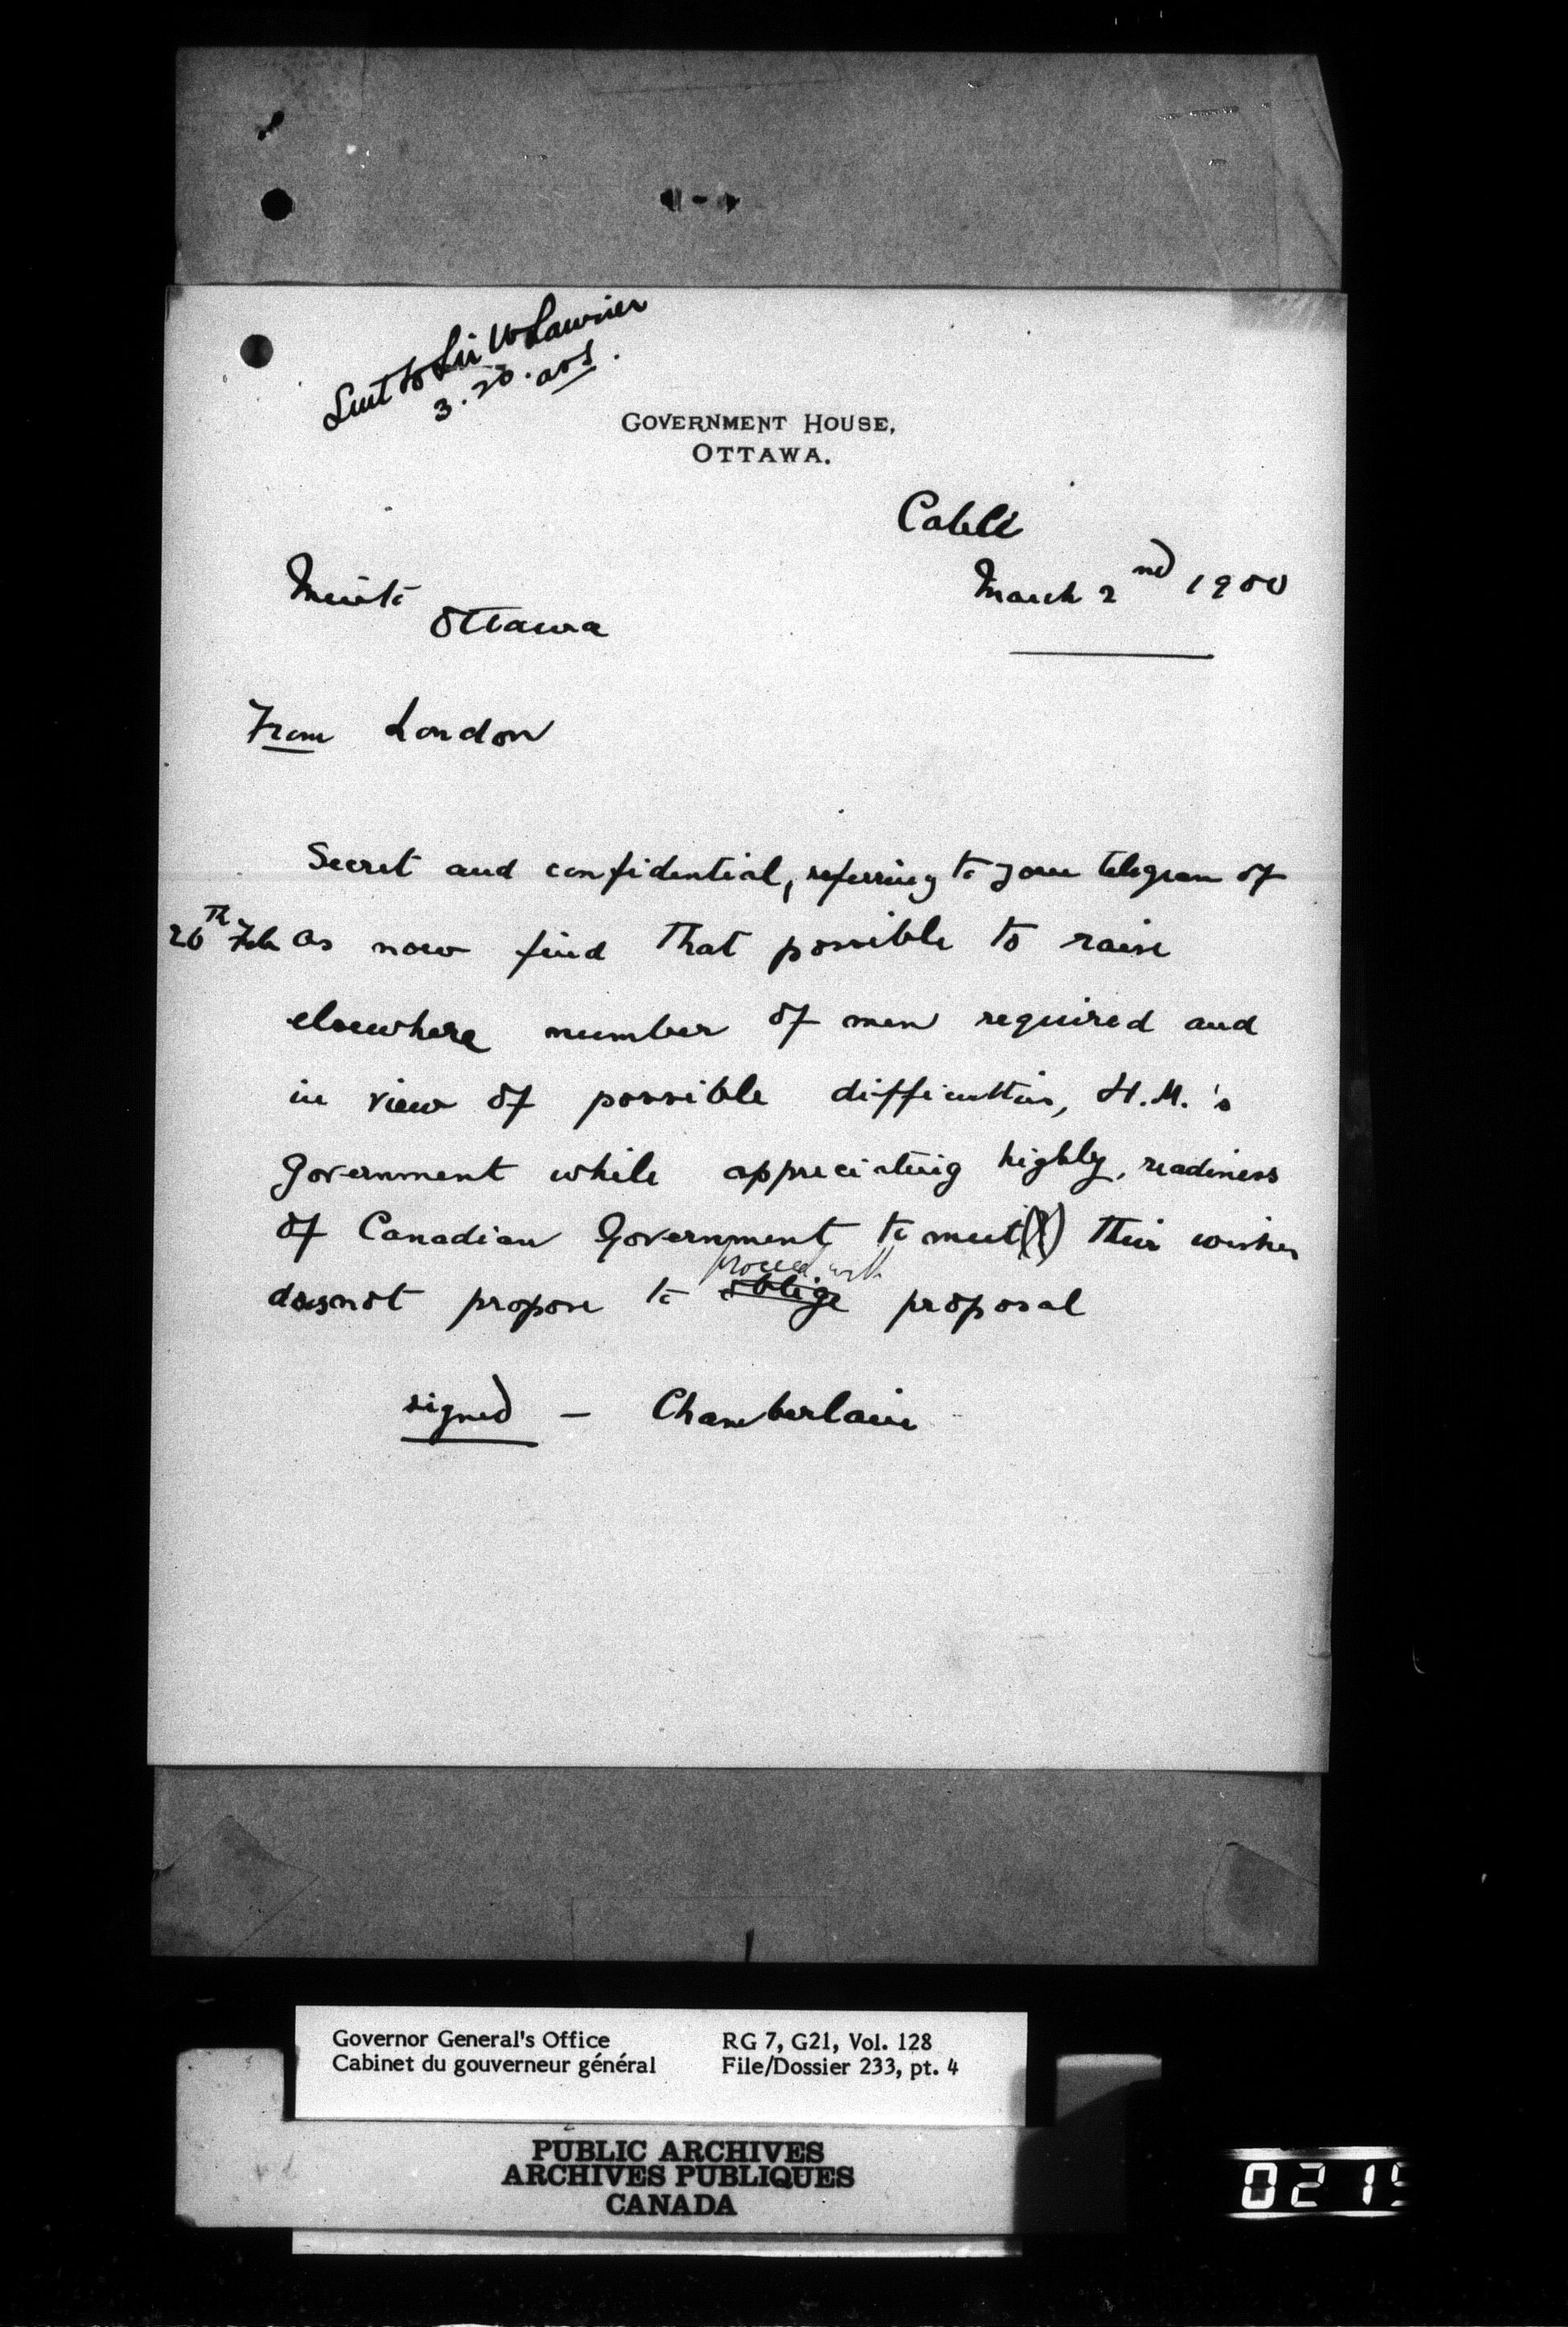 Sent to Sir W Laurier
3.20.
GOVERNMENT HOUSE,
OTTAWA.
Cable
March 2nd 1900
Minto
Ottawa
From London
Secret and confidential, referring to your telegram of
26th Feb as now find that possible to raise
elsewhere number of men required and
in view of possible difficulties, H.M.'s
Government while appreciating highly, readiness
of Canadian Government to meet their wishes
proceed with
does not propose to oblige proposal
signed - Chamberlain
Governor General's Office
Cabinet du gouverneur général
RG 7, G21, Vol. 128
File/Dossier 233, pt. 4
PUBLIC ARCHIVES
ARCHIVES PUBLIQUES
CANADA
021